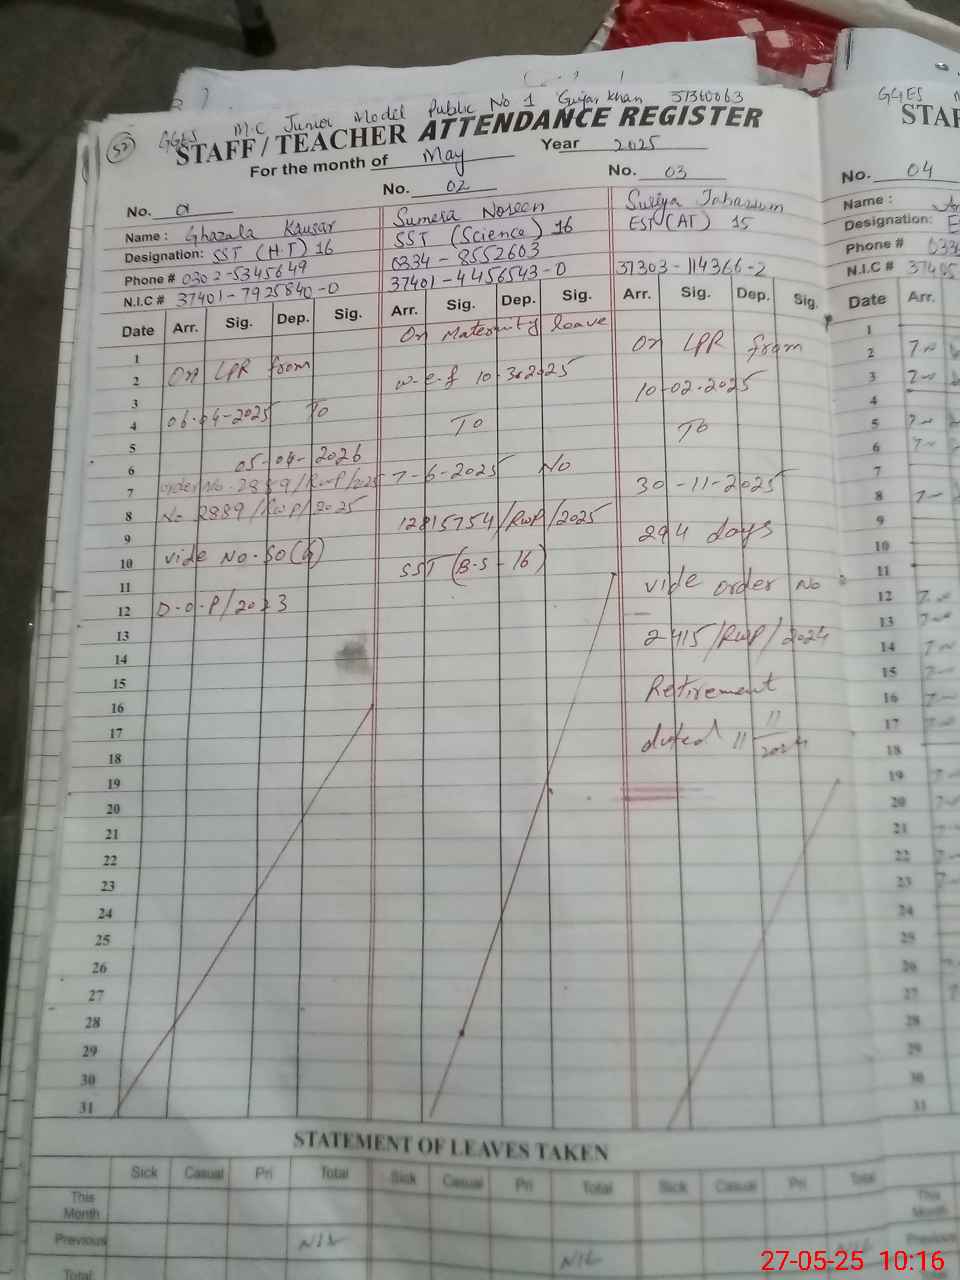 52
GGES M.C Junior Model Public No 1 Gujar Khan 37360063
STAFF / TEACHER ATTENDANCE REGISTER
For the month of May Year 2025
No. 01
Name : Ghazala Kausar
Designation: SST (H.T) 16
Phone # 0302-5345649
N.I.C # 37401-7925840-0
Date Arr. Sig. Dep. Sig.
On LPR from
06-04-2025 To
05-04-2026
order No. 2889/RWP/2025
No 2889/RWP/2025
vide No. SO(G)
D.O.P/2023
No. 02
Sumera Noreen
SST (Science) 16
0334-8552603
37401-4456543-0
Arr. Sig. Dep. Sig.
On Maternity leave
w.e.f 10-3-2025
To
7-6-2025 No
12815754/RWP/2025
SST (B.S-16)
No. 03
Suriya Tabassum
EST (AT) 15
37303-114366-2
Arr. Sig. Dep. Sig.
On LPR from
10-02-2025
To
30-11-2025
294 days
vide order No
2415/RWP/2024
Retirement
dated 11 11/2024
1
2
3
4
5
6
7
8
9
10
11
12
13
14
15
16
17
18
19
20
21
22
23
24
25
26
27
28
29
30
31
STATEMENT OF LEAVES TAKEN
Sick Casual Pri Total Sick Casual Pri Total Sick Casual Pri Total
This Month
Previous NIL NIL NIL
Total
GGES
STAF
No. 04
Name :
Designation:
Phone # 033
N.I.C # 37405
Date Arr.
1
2
3
4
5
6
7
8
9
10
11
12
13
14
15
16
17
18
19
20
21
22
23
24
25
26
27
28
29
30
31
This Month
Previous
27-05-25 10:16